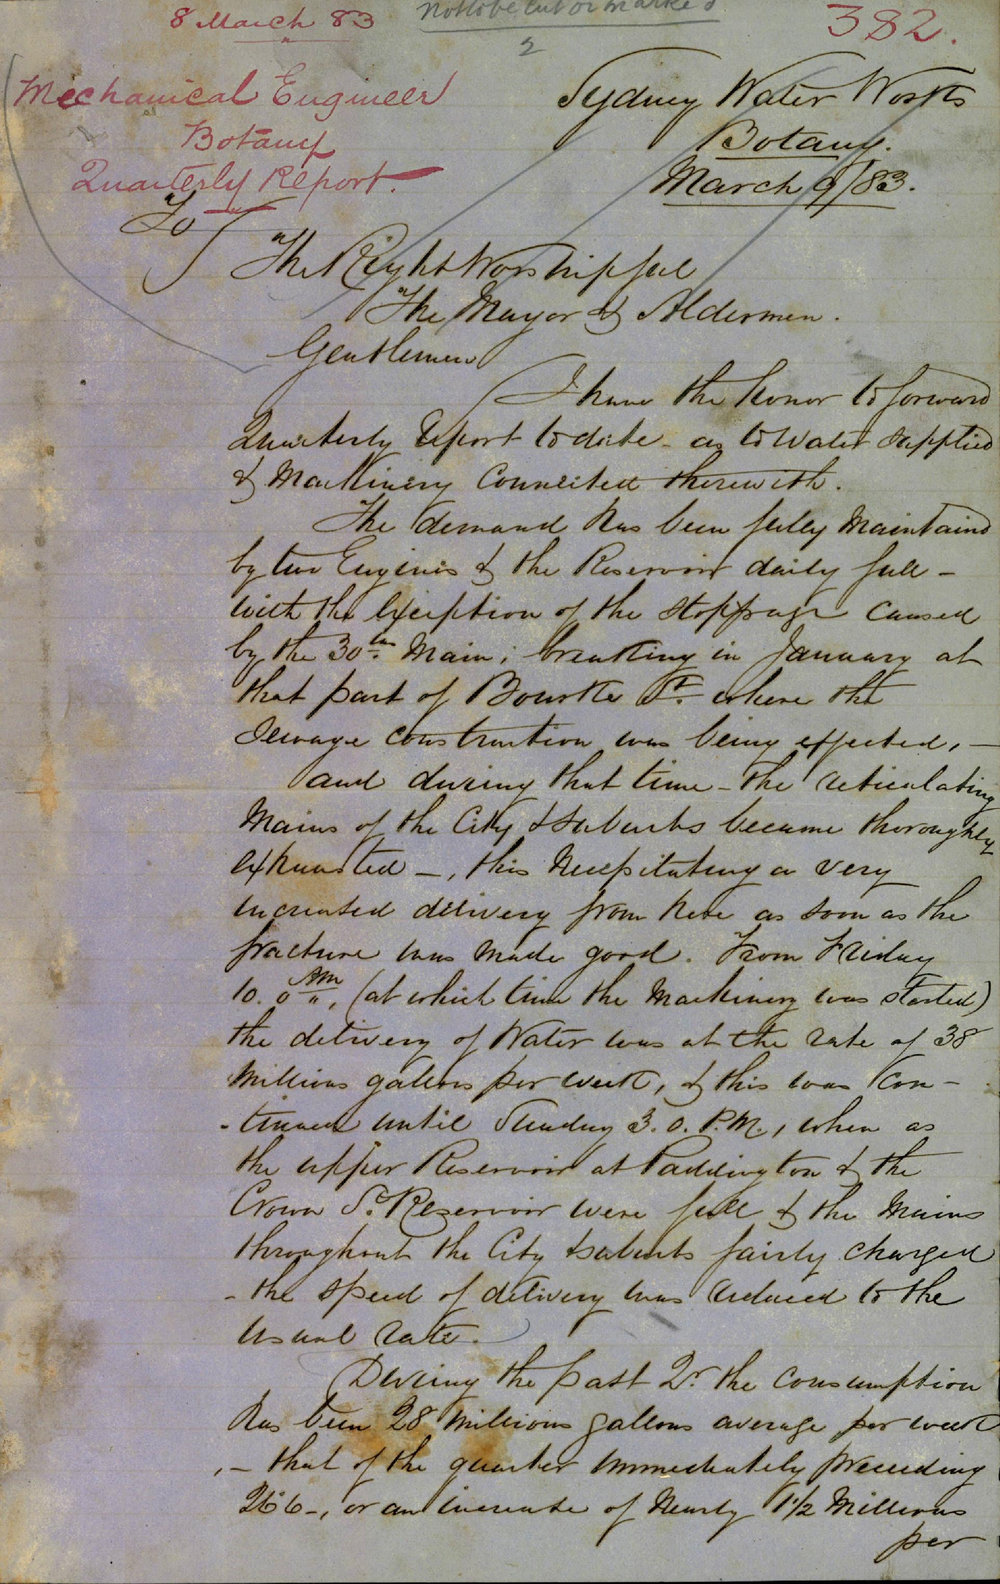 8 March 83
Not to be cut or marked
2
382.
Mechanical Engineer
Botany
Quarterly Report.
Sydney Water Works
Botany.
March 9/83.
To
The Right Worshipful
The Mayor & Aldermen.
Gentlemen
I have the honor to forward
Quarterly Report to date - as to Water supplied
& Machinery Connected therewith.
The demand has been fully maintaind
by two Engines & the Reservoir daily full -
with the exception of the stoppage caused
by the 30in Main; breaking in January at
that part of Bourke St. where the
Sewage construction was being effected, -
and during that time - the reticulating
Mains of the City & Suburbs became thoroughly
exhausted -, this necessitating a very
increased delivery from here as soon as the
fracture was made good. From Friday
10. 0 AM, (at which time the Machinery was started)
the delivery of Water was at the rate of 38
Millions gallons per week, & this was con-
-tinued until Sunday 3. 0. P.M., when as
the upper Reservoir at Paddington & the
Crown St. Reservoir were full & the Mains
throughout the City & suburbs fairly charged
- the speed of delivery was reduced to the
usual rate.
During the past Qr. the consumption
has been 28 Millions gallons average per week
, - that of the quarter immediately preceding
26·6 -, or an increase of nearly 1 1/2 Millions
per